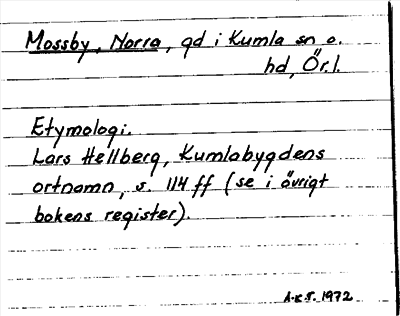 Mossby, Norra, gd i Kumla sn o.
hd, Ör.l.
Etymologi.
Lars Hellberg, Kumlabygdens
ortnamn, s. 114 ff (se i övrigt
bokens register).
A.K.T. 1972